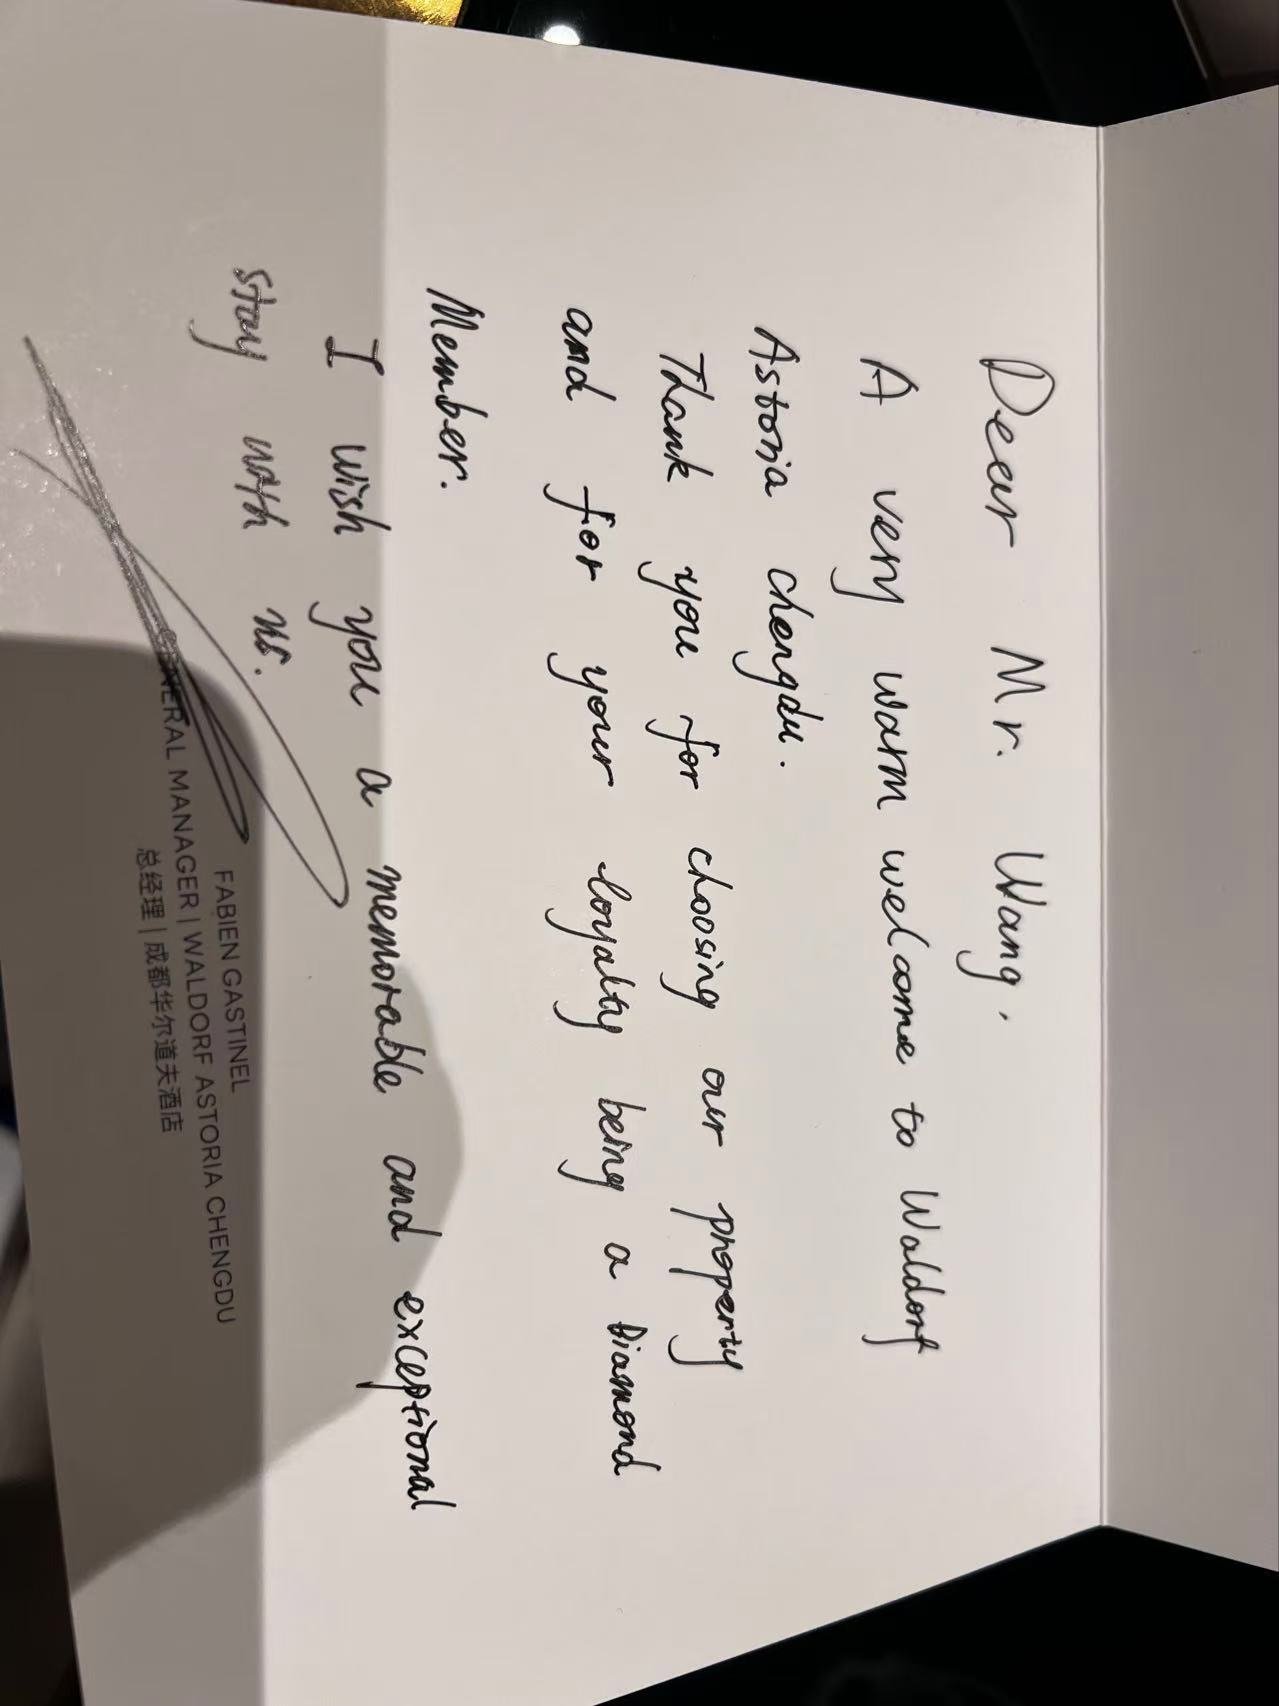 Dear Mr. Wang,
A very warm welcome to Waldorf
Astoria chengdu.
Thank you for choosing our property
and for your loyalty being a Diamond
Member.
I wish you a memorable and exceptional
stay with us.
FABIEN GASTINEL
GENERAL MANAGER | WALDORF ASTORIA CHENGDU
总经理 | 成都华尔道夫酒店